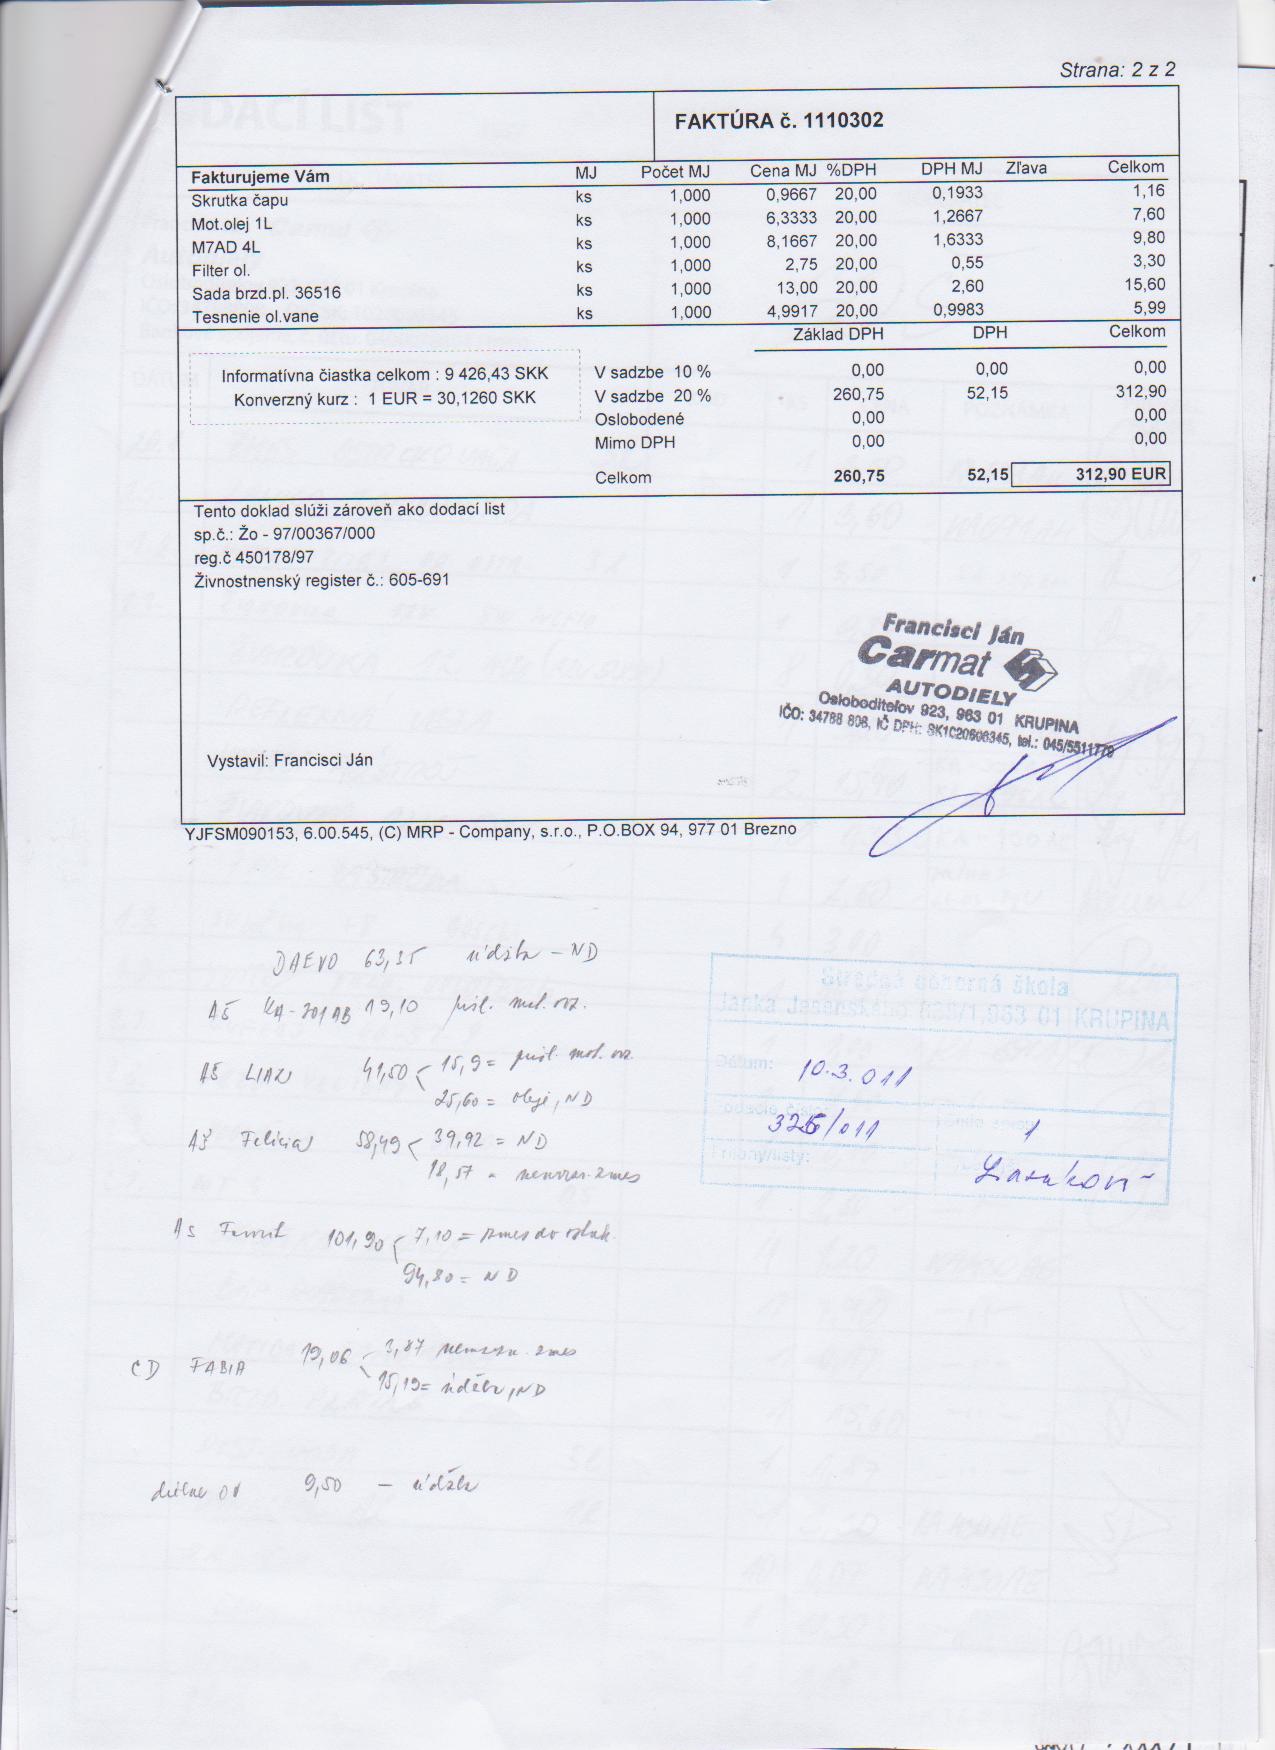 Strana: 2 z 2
FAKTÚRA č. 1110302
Fakturujeme Vám MJ Počet MJ Cena MJ %DPH DPH MJ Zľava Celkom
Skrutka čapu ks 1,000 0,9667 20,00 0,1933 1,16
Mot.olej 1L ks 1,000 6,3333 20,00 1,2667 7,60
M7AD 4L ks 1,000 8,1667 20,00 1,6333 9,80
Filter ol. ks 1,000 2,75 20,00 0,55 3,30
Sada brzd.pl. 36516 ks 1,000 13,00 20,00 2,60 15,60
Tesnenie ol.vane ks 1,000 4,9917 20,00 0,9983 5,99
Základ DPH DPH Celkom
Informatívna čiastka celkom : 9 426,43 SKK
Konverzný kurz : 1 EUR = 30,1260 SKK
V sadzbe 10 % 0,00 0,00 0,00
V sadzbe 20 % 260,75 52,15 312,90
Oslobodené 0,00 0,00
Mimo DPH 0,00 0,00
Celkom 260,75 52,15 312,90 EUR
Tento doklad slúži zároveň ako dodací list
sp.č.: Žo - 97/00367/000
reg.č 450178/97
Živnostenský register č.: 605-691
Francisci Ján
Carmat
AUTODIELY
Osloboditeľov 923, 963 01 KRUPINA
IČO: 34788 808, IČ DPH: SK1C20606345, tel.: 045/5511779
Vystavil: Francisci Ján
YJFSM090153, 6.00.545, (C) MRP - Company, s.r.o., P.O.BOX 94, 977 01 Brezno
DAEVO 63,35 údržba - ND
AŠ KA-201AB 19,10
AŠ LIAZ 41,50 15,9 =
25,60 = oleje, ND
AŠ Felicia 58,49 39,92 = ND
18,57 =
AŠ 101,90 7,10 = zmes do
94,80 = ND
CD FABIA 19,06 3,87 zmes
15,19 = údržba, ND
dielne OV 9,50 - údržba
Stredná odborná škola
Janka Jesenského 838/1, 963 01 KRUPINA
Dátum: 10.3.011
Podacie číslo: 326/011
1
Prílohy/listy: